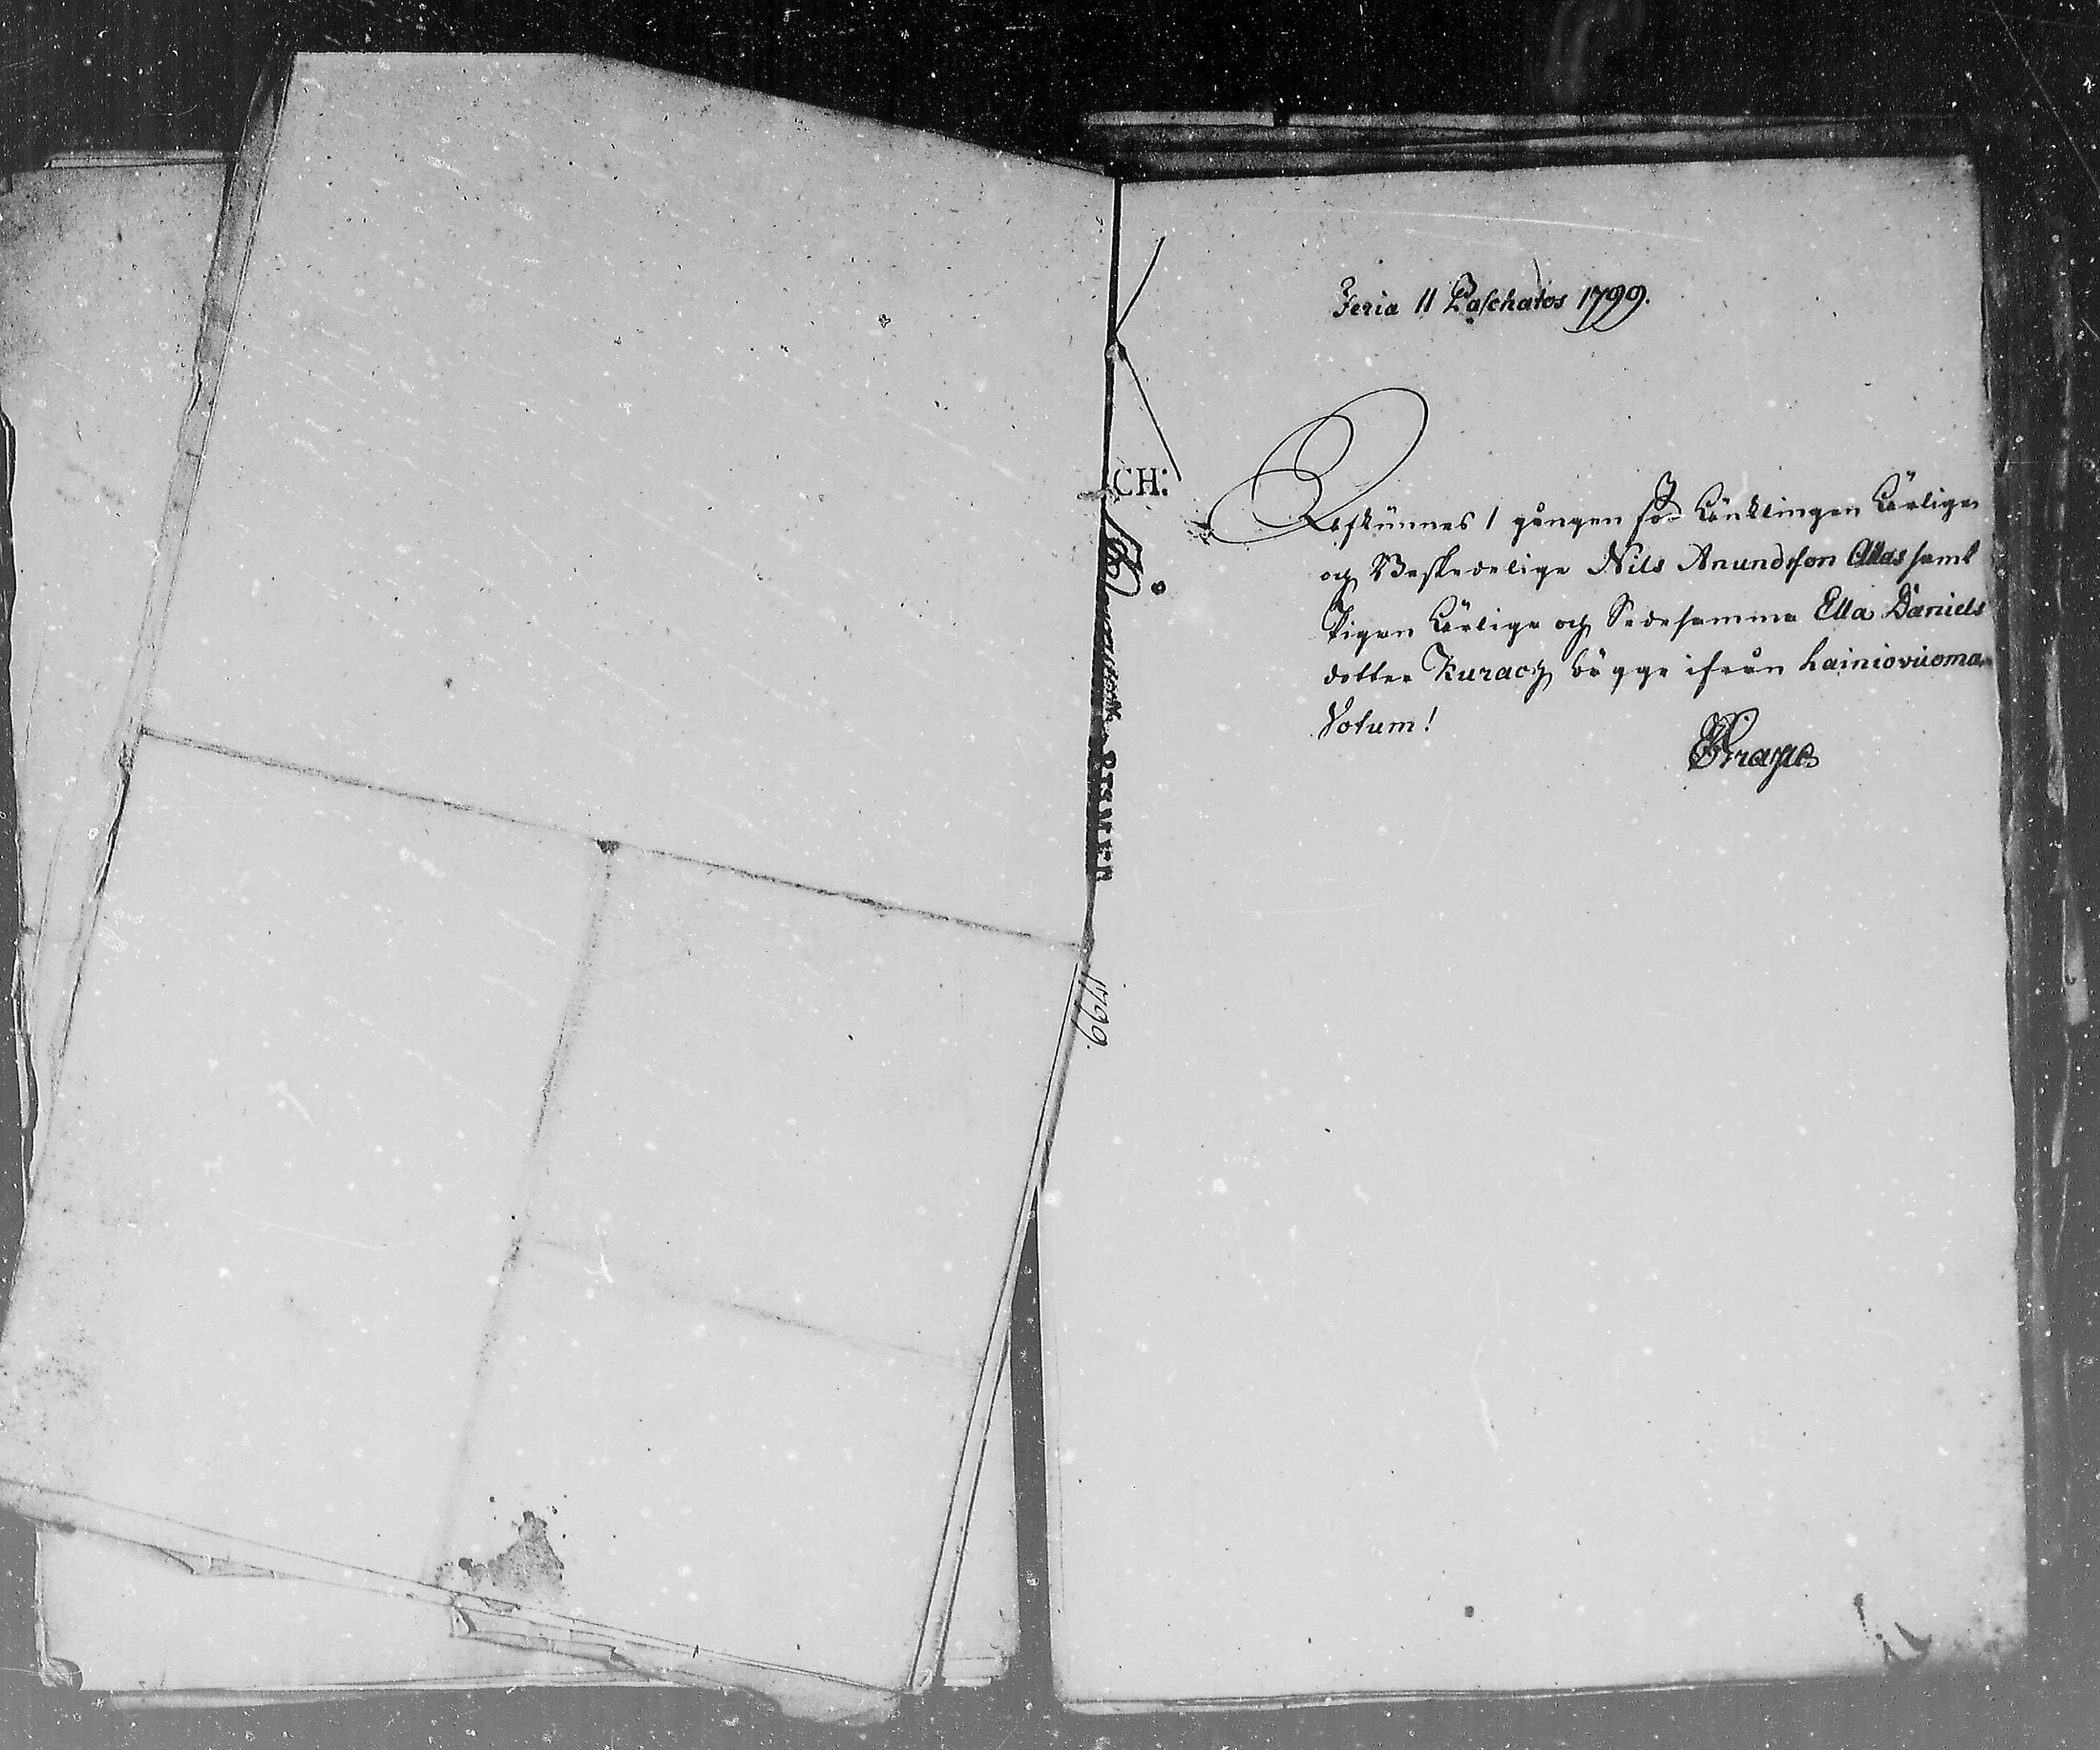 Feria II Paschatos 1799.
CH:
Afkünnes 1 gången för Ynklingen Ärlige
och Beskedelige Nils Anundsson Allas samt
Pigan Ärliga och Sedesamma Ella Daniels
dotter Kurack bägge ifrån Kainiovuoma
Votum!
1799.